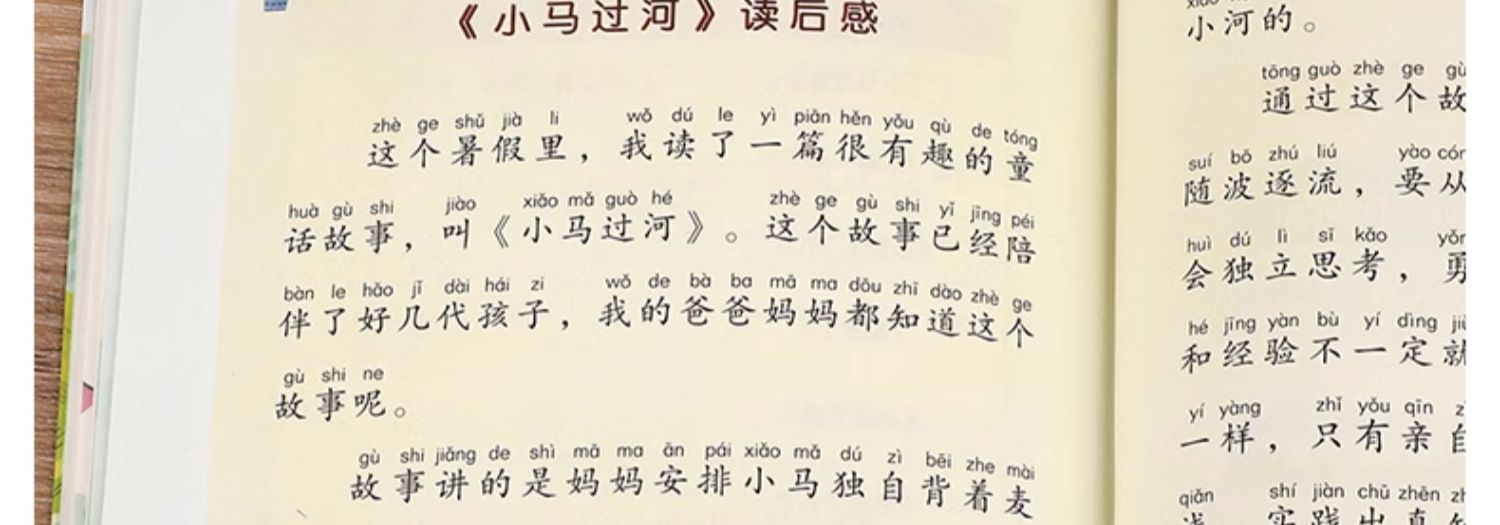 《小马过河》读后感
zhè ge shǔ jià li wǒ dú le yì piān hěn yǒu qù de tóng
这个暑假里，我读了一篇很有趣的童
huà gù shi jiào xiǎo mǎ guò hé zhè ge gù shi yǐ jīng péi
话故事，叫《小马过河》。这个故事已经陪
bàn le hǎo jǐ dài hái zi wǒ de bà ba mā ma dōu zhī dào zhè ge
伴了好几代孩子，我的爸爸妈妈都知道这个
gù shi ne
故事呢。
gù shi jiǎng de shì mā ma ān pái xiǎo mǎ dú zì bēi zhe mài
故事讲的是妈妈安排小马独自背着麦
小河的。
tōng guò zhè ge gù
通过这个故
suí bō zhú liú yào cóng
随波逐流，要从
huì dú lì sī kǎo
会独立思考，勇
hé jīng yàn bù yí dìng
和经验不一定就
yí yàng zhǐ yǒu qīn
一样，只有亲自
qiǎn shí jiàn chū zhēn